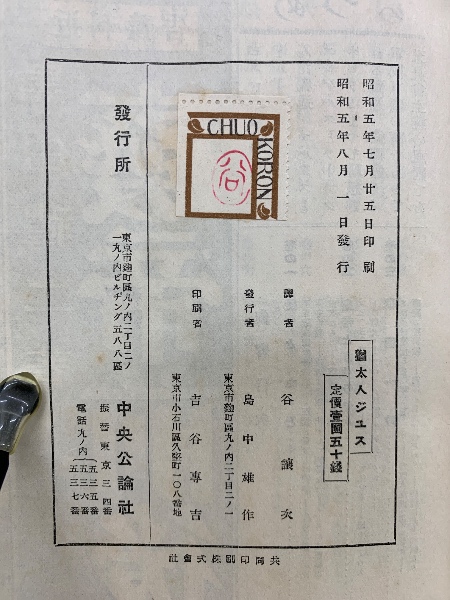 昭和五年七月廿五日印刷
昭和五年八月一日發行
猶太人ジユス
定價壹圓五十錢
CHUO
KORON
谷
譯者 谷讓次
發行者 島中雄作
東京市麹町區丸ノ內二丁目二ノ一
印刷者 吉谷專吉
東京市小石川區久堅町一〇八番地
發行所
東京市麹町區丸ノ內二丁目二ノ
一丸ノ內ビルヂング五八八區
中央公論社
振替東京三四番
電話丸ノ內
五三五番
五三六番
五三七番
共同印刷株式會社